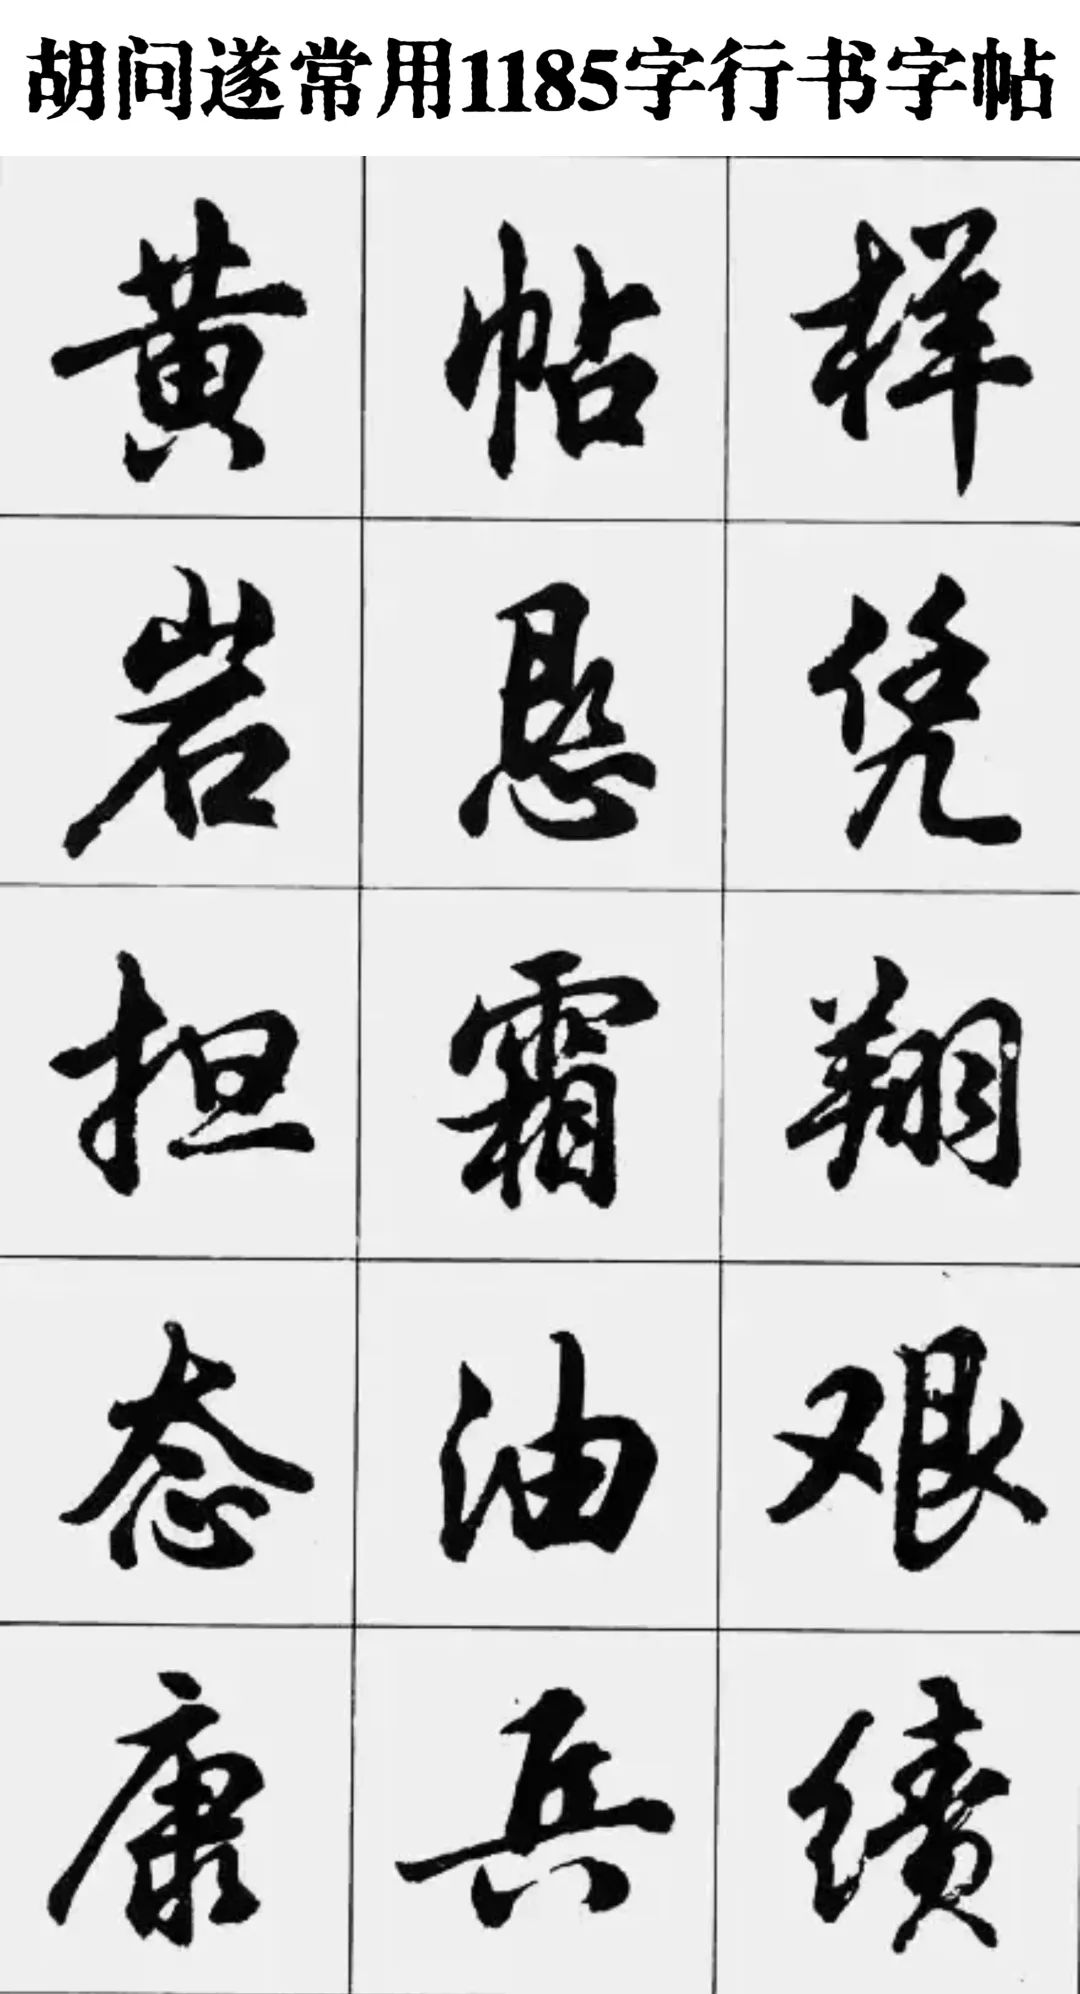 胡问遂常用1185字行书字帖
黄帖样
岩悬凭
担霜翔
态油艰
康兵续